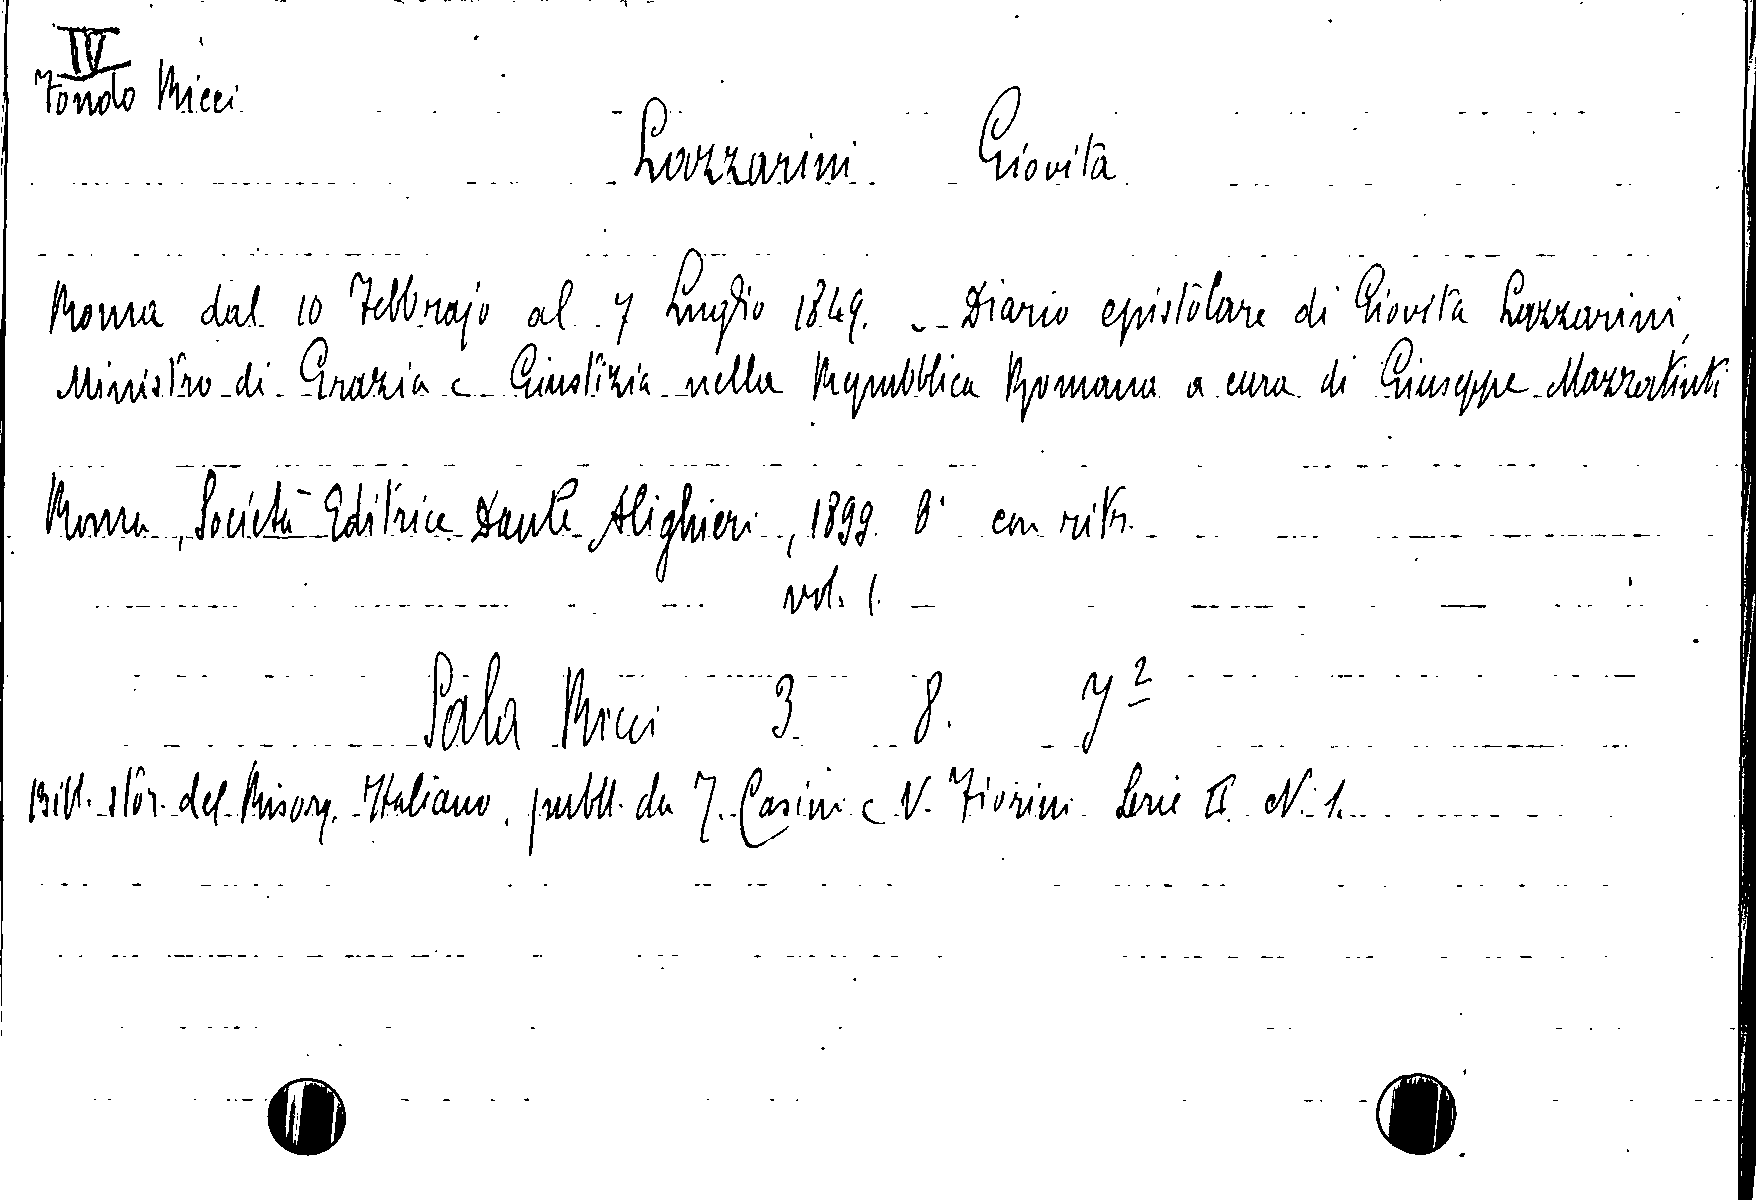 IV
Fondo Ricci
Lazzarini Giovita
Roma dal 10 Febbrajo al 7 Luglio 1849. - Diario epistolare di Giovita Lazzarini,
Ministro di Grazia e Giustizia nella Repubblica Romana a cura di Giuseppe Mazzatinti
Roma, Società Editrice Dante Alighieri, 1899. 8° con ritr.
vol. 1.
Sala Ricci 3. 8. 7²
Bibl. stor. del Risorg. Italiano, pubbl. da T. Casini e V. Fiorini Serie II N. 1.